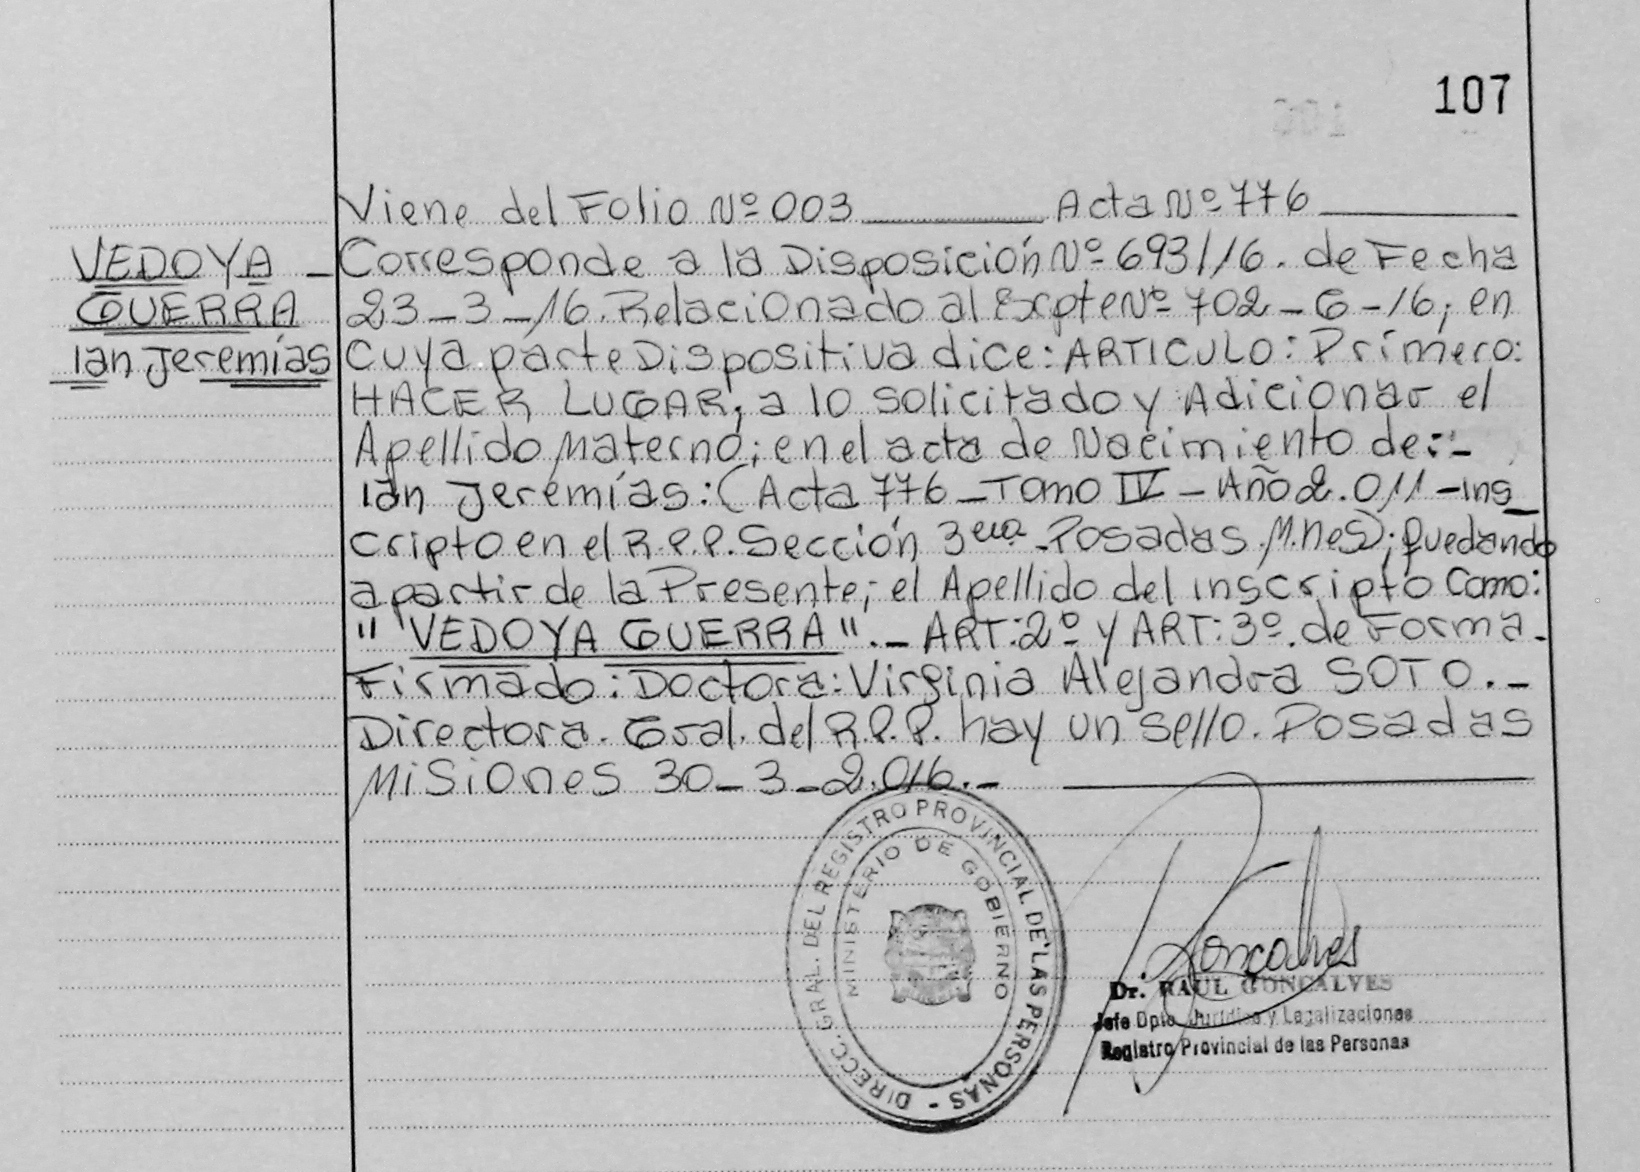 107
Viene del Folio Nº 003 ________ Acta Nº 776 ________
VEDOYA _
GUERRA
Ian Jeremías
Corresponde a la Disposición Nº 693//16. de Fecha
23_3_16. Relacionado al Expte Nº 702_6_16; en
cuya parte Dispositiva dice: ARTICULO: Primero:
HACER LUGAR, a lo solicitado y Adicionar el
Apellido Materno; en el acta de Nacimiento de:_
Ian Jeremías: (Acta 776_Tomo IV_Año 2.011_Ins_
cripto en el R.P.P. Sección 3era. Posadas M.nes); Quedando
a partir de la Presente; el Apellido del inscripto Como:
"VEDOYA GUERRA"._ ART:2º y ART:3º. de Forma.
Firmado: Doctora: Virginia Alejandra SOTO._
Directora. Gral. del R.P.P. hay un sello. Posadas
Misiones 30_3_2.016._ ________
DIRECC. GRAL. DEL REGISTRO PROVINCIAL DE LAS PERSONAS -
MINISTERIO DE GOBIERNO
Goncalves
Dr. RAUL GONCALVES
Jefe Dpto. Jurídico y Legalizaciones
Registro Provincial de las Personas